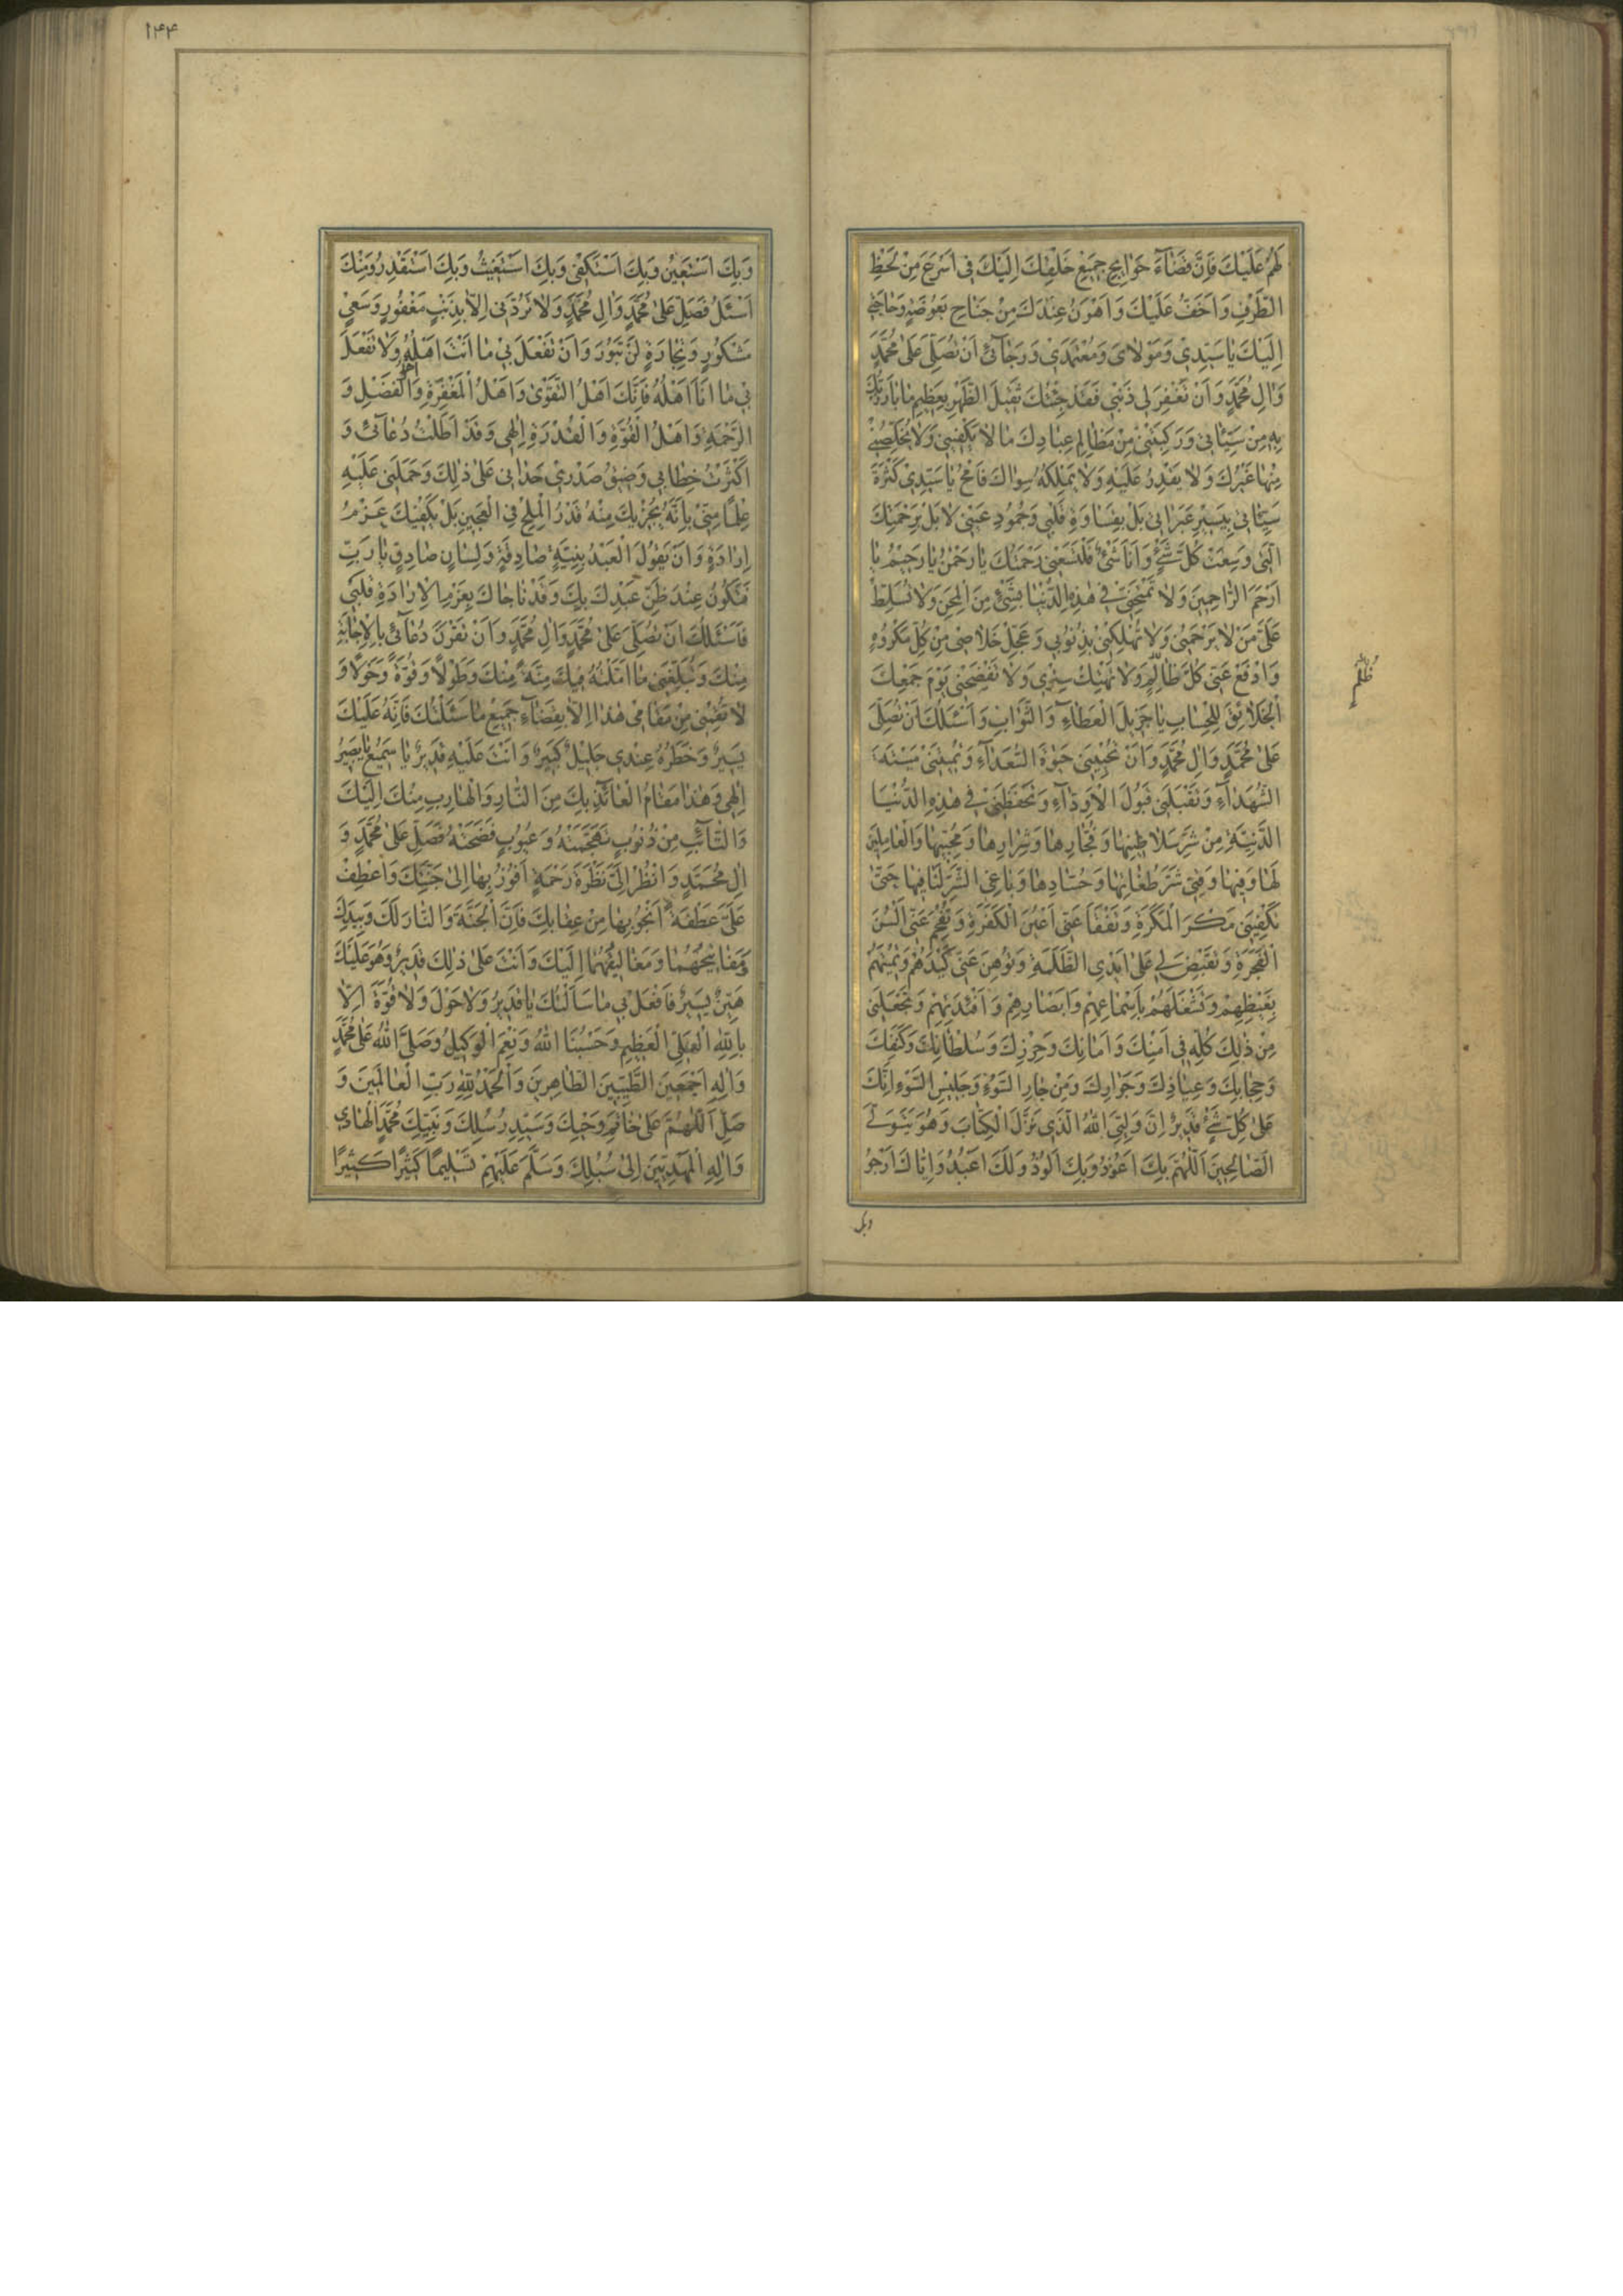 لَهُمْ عَلَيْكَ فَاِنَّ قَضَآءَ حَوَايِجِ جَمِيعِ خَلْقِكَ اِلَيْكَ فِى اَسْرَعَ مِنْ لَحْظِ
الطَّرْفِ وَاَخَفُّ عَلَيْكَ وَاَهْوَنُ عِنْدَكَ مِنْ جَنَاحِ بَعُوضَةٍ وَحَاجَتِى
اِلَيْكَ يَا سَيِّدِى وَمَوْلَاىَ وَمُعْتَمَدِى وَرَجَآئِى اَنْ تُصَلِّىَ عَلٰى مُحَمَّدٍ
وَاٰلِ مُحَمَّدٍ وَاَنْ تَغْفِرَ لِى ذَنْبِى فَقَدْ جِئْتُكَ ثَقِيلَ الظَّهْرِ بِعَظِيمِ مَا بَارَزْتُكَ
بِهِ مِنْ سَيِّئَاتِى وَرَكِبَنِى مِنْ مَظَالِمِ عِبَادِكَ مَا لَا يَكْفِينِى وَلَا يُخَلِّصُنِى
مِنْهَا غَيْرُكَ وَلَا يَقْدِرُ عَلَيْهِ وَلَا يَمْلِكُهُ سِوَاكَ فَامْحُ يَا سَيِّدِى كَثْرَةَ
سَيِّئَاتِى بِيَسِيرِ عَبَرَاتِى بَلْ بِقَسَاوَةِ قَلْبِى وَجُمُودِ عَيْنِى لَا بَلْ بِرَحْمَتِكَ
الَّتِى وَسِعَتْ كُلَّ شَىْءٍ وَاَنَا شَىْءٌ فَلْتَسَعْنِى رَحْمَتُكَ يَا رَحْمٰنُ يَا رَحِيمُ يَا
اَرْحَمَ الرَّاحِمِينَ وَلَا تَمْتَحِنِّى فِى هٰذِهِ الدُّنْيَا بِشَىْءٍ مِنَ الْمِحَنِ وَلَا تُسَلِّطْ
عَلَىَّ مَنْ لَا يَرْحَمُنِى وَلَا تُهْلِكْنِى بِذُنُوبِى وَعَجِّلْ خَلَاصِى مِنْ كُلِّ مَكْرُوهٍ
وَادْفَعْ عَنِّى كُلَّ ظَالِمٍ وَلَا تَهْتِكْ سِتْرِى وَلَا تَفْضَحْنِى يَوْمَ جَمْعِكَ
ظُلْمٍ
الْخَلَائِقَ لِلْحِسَابِ يَا جَزِيلَ الْعَطَآءِ وَالثَّوَابِ وَاَسْئَلُكَ اَنْ تُصَلِّىَ
عَلٰى مُحَمَّدٍ وَاٰلِ مُحَمَّدٍ وَاَنْ تُحْيِيَنِى حَيٰوةَ السُّعَدَآءِ وَتُمِيتَنِى مِيتَةَ
الشُّهَدَآءِ وَتَقْبَلَنِى قَبُولَ الْاَوِدَّآءِ وَتَحْفَظَنِى فِى هٰذِهِ الدُّنْيَا
الدَّنِيَّةِ مِنْ شَرِّ سَلَاطِينِهَا وَفُجَّارِهَا وَشِرَارِهَا وَمُحِبِّيهَا وَالْعَامِلِينَ
لَهَا وَفِيهَا وَقِنِى شَرَّ طُغَاتِهَا وَحُسَّادِهَا وَبَاغِى الشَّرِّ لَنَا فِيهَا حَتّٰى
تَكْفِيَنِى مَكْرَ الْمَكَرَةِ وَتَفْقَأَ عَنِّى اَعْيُنَ الْكَفَرَةِ وَتُفْحِمَ عَنِّى اَلْسُنَ
الْفَجَرَةِ وَتَقْبِضَ لِى عَلٰى اَيْدِى الظَّلَمَةِ وَتُوهِنَ عَنِّى كَيْدَهُمْ وَتُمِيتَهُمْ
بِغَيْظِهِمْ وَتَشْغَلَهُمْ بِاَسْمَاعِهِمْ وَاَبْصَارِهِمْ وَاَفْئِدَتِهِمْ وَتَجْعَلَنِى
مِنْ ذٰلِكَ كُلِّهِ فِى اَمْنِكَ وَاَمَانِكَ وَحِرْزِكَ وَسُلْطَانِكَ وَكَنَفِكَ
وَحِجَابِكَ وَعِيَاذِكَ وَجَوَارِكَ وَمِنْ جَارِ السَّوْءِ وَجَلِيسِ السَّوْءِ اِنَّكَ
عَلٰى كُلِّ شَىْءٍ قَدِيرٌ اِنَّ وَلِيِّىَ اللّٰهُ الَّذِى نَزَّلَ الْكِتَابَ وَهُوَ يَتَوَلَّى
الصَّالِحِينَ اَللّٰهُمَّ بِكَ اَعُوذُ وَبِكَ اَلُوذُ وَلَكَ اَعْبُدُ وَاِيَّاكَ اَرْجُو
وبك
۱۴۴
وَبِكَ اَسْتَعِينُ وَبِكَ اَسْتَكْفِى وَبِكَ اَسْتَغِيثُ وَبِكَ اَسْتَقْدِرُ وَمِنْكَ
اَسْئَلُ فَصَلِّ عَلٰى مُحَمَّدٍ وَاٰلِ مُحَمَّدٍ وَلَا تَرُدَّنِى اِلَّا بِذَنْبٍ مَغْفُورٍ وَسَعْىٍ
مَشْكُورٍ وَتِجَارَةٍ لَنْ تَبُورَ وَاَنْ تَفْعَلَ بِى مَا اَنْتَ اَهْلُهُ وَلَا تَفْعَلَ
بِى مَا اَنَا اَهْلُهُ فَاِنَّكَ اَهْلُ التَّقْوٰى وَاَهْلُ الْمَغْفِرَةِ وَاَهْلُ الْفَضْلِ وَ
الرَّحْمَةِ وَاَهْلُ الْقُوَّةِ وَالْقُدْرَةِ اِلٰهِى وَقَدْ اَطَلْتُ دُعَآئِى وَ
اَكْثَرْتُ خِطَابِى وَضِيقُ صَدْرِى حَدَانِى عَلٰى ذٰلِكَ وَحَمَلَنِى عَلَيْهِ
عِلْمًا مِنِّى بِاَنَّهُ يُجْزِيكَ مِنْهُ قَدْرُ الْمِلْحِ فِى الْعَجِينِ بَلْ يَكْفِيكَ عَزْمُ
اِرَادَةٍ وَاَنْ يَقُولَ الْعَبْدُ بِنِيَّةٍ صَادِقَةٍ وَلِسَانٍ صَادِقٍ يَا رَبِّ
فَتَكُونُ عِنْدَ ظَنِّ عَبْدِكَ بِكَ وَقَدْ نَاجَاكَ بِعَزْمِ الْاِرَادَةِ قَلْبِى
فَاَسْئَلُكَ اَنْ تُصَلِّىَ عَلٰى مُحَمَّدٍ وَاٰلِ مُحَمَّدٍ وَاَنْ تَقْرُنَ دُعَآئِى بِالْاِجَابَةِ
مِنْكَ وَتُبَلِّغَنِى مَا اَمَّلْتُهُ فِيكَ مِنَّةً مِنْكَ وَطَوْلًا وَقُوَّةً وَحَوْلًا وَ
لَا تُقِيمَنِى مِنْ مَقَامِى هٰذَا اِلَّا بِقَضَآءِ جَمِيعِ مَا سَئَلْتُكَ فَاِنَّهُ عَلَيْكَ
يَسِيرٌ وَخَطَرُهُ عِنْدِى جَلِيلٌ كَبِيرٌ وَاَنْتَ عَلَيْهِ قَدِيرٌ يَا سَمِيعُ يَا بَصِيرُ
اِلٰهِى وَهٰذَا مَقَامُ الْعَائِذِ بِكَ مِنَ النَّارِ وَالْهَارِبِ مِنْكَ اِلَيْكَ
وَالتَّآئِبِ مِنْ ذُنُوبٍ تَهَجَّمَتْهُ وَعُيُوبٍ فَضَحَتْهُ فَصَلِّ عَلٰى مُحَمَّدٍ وَ
اٰلِ مُحَمَّدٍ وَانْظُرْ اِلَىَّ نَظْرَةَ رَحْمَةٍ اَفُوزُ بِهَا اِلٰى جَنَّتِكَ وَاعْطِفْ
عَلَىَّ عَطْفَةً اَنْجُو بِهَا مِنْ عِقَابِكَ فَاِنَّ الْجَنَّةَ وَالنَّارَ لَكَ وَبِيَدِكَ
وَمَفَاتِيحُهُمَا وَمَغَالِيقُهُمَا اِلَيْكَ وَاَنْتَ عَلٰى ذٰلِكَ قَدِيرٌ وَهُوَ عَلَيْكَ
هَيِّنٌ يَسِيرٌ فَافْعَلْ بِى مَا سَاَلْتُكَ يَا قَدِيرُ وَلَا حَوْلَ وَلَا قُوَّةَ اِلَّا
بِاللّٰهِ الْعَلِىِّ الْعَظِيمِ وَحَسْبُنَا اللّٰهُ وَنِعْمَ الْوَكِيلُ وَصَلَّى اللّٰهُ عَلٰى مُحَمَّدٍ
وَاٰلِهِ اَجْمَعِينَ الطَّيِّبِينَ الطَّاهِرِينَ وَالْحَمْدُ لِلّٰهِ رَبِّ الْعَالَمِينَ وَ
صَلِّ اَللّٰهُمَّ عَلٰى خَاتَمِ وَحْيِكَ وَسَيِّدِ رُسُلِكَ وَنَبِيِّكَ مُحَمَّدٍ الْهَادِى
وَاٰلِهِ الْمَهْدِيِّينَ اِلٰى سُبُلِكَ وَسَلَّمَ عَلَيْهِمْ تَسْلِيمًا كَثِيرًا كَثِيرًا